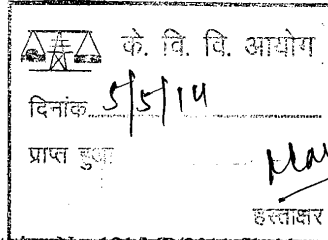 के. वि. वि. आयोग
दिनांक 5/5/14
प्राप्त हुआ
हस्ताक्षर